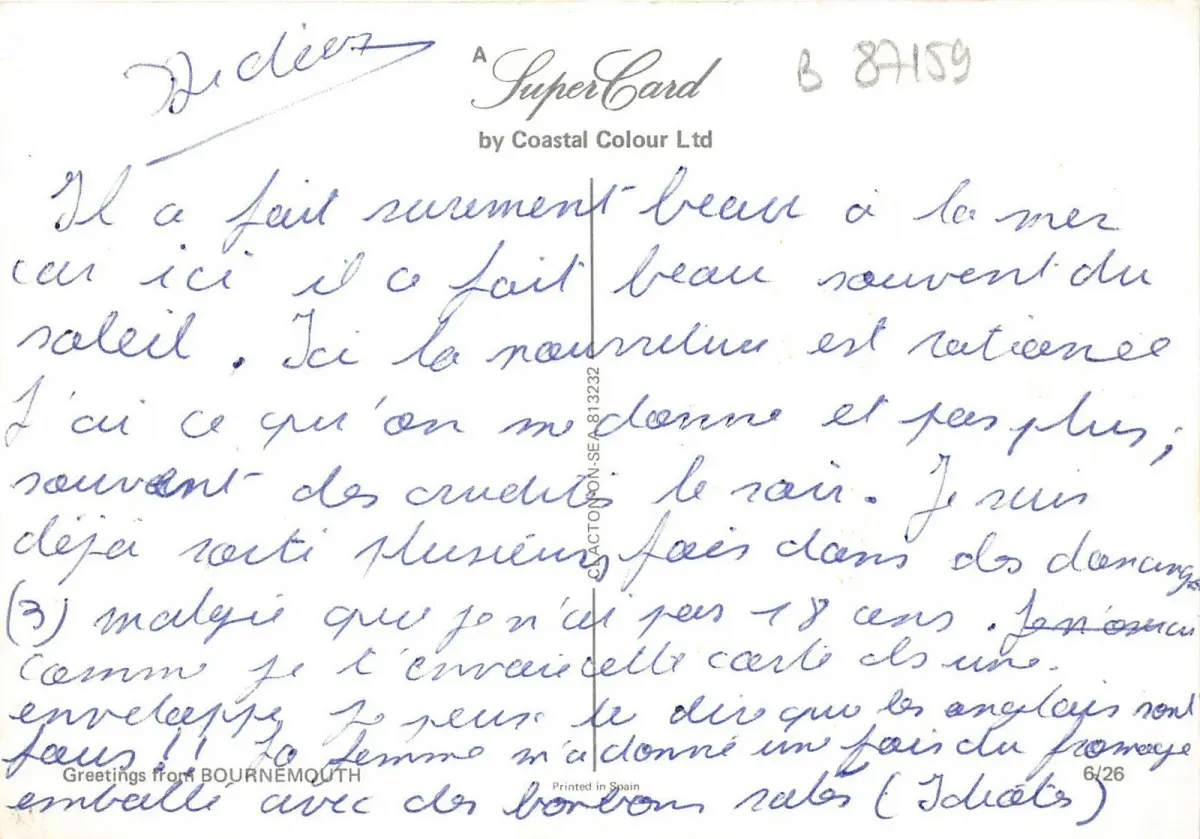 Didier
A
SuperCard
B 87159
by Coastal Colour Ltd
Il a fait surement beau à la mer
car ici il a fait beau souvent du
soleil. Ici la nourriture est rationée
J'ai ce qu'on me donne et pas plus ;
souvent des crudités le soir. Je suis
déjà sorti plusieurs fois dans des dancings
(3) malgré que je n'ai pas 18 ans.
Comme je t'envoie cette carte ds une
enveloppe je peux te dire que les anglais sont
fous !! La femme m'a donné une fois du fromage
emballé avec des bonbons salés (Idiots)
CLACTON-ON-SEA 813232
Greetings from BOURNEMOUTH
Printed in Spain
6/26